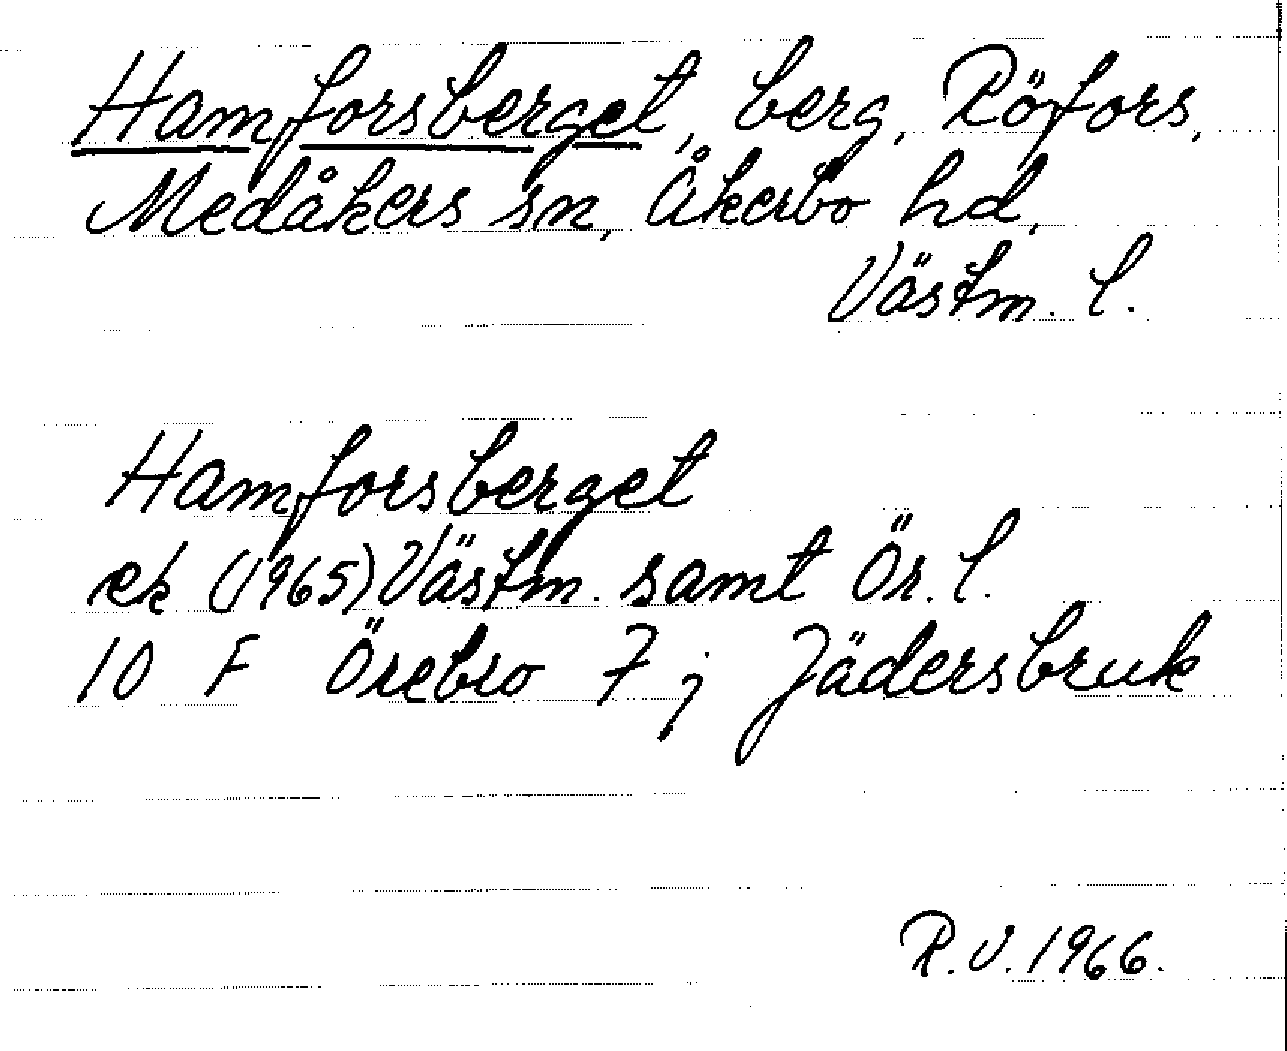 Hamforsberget, berg, Röfors,
Medåkers sn, Åkerbo hd,
Västm. l.
Hamforsberget
ek (1965) Västm. samt Ör. l.
10 F Örebro 7 j Jädersbruk
R.V. 1966.